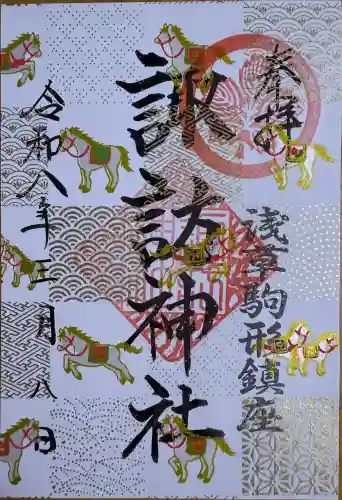 奉拝
浅草駒形鎮座
諏訪神社
令和八年三月八日